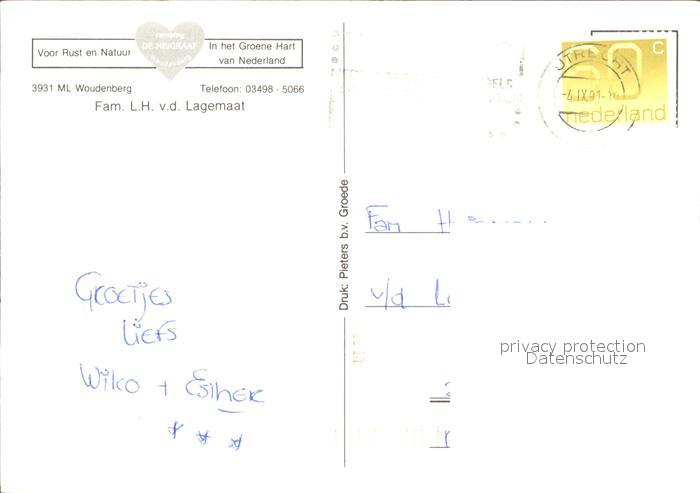 Voor Rust en Natuur
camping
DE HEIGRAAF
Woudenberg
In het Groene Hart
van Nederland
3931 ML Woudenberg
Telefoon: 03498 - 5066
Fam. L.H. v.d. Lagemaat
Druk: Pieters b.v. Groede
UTRECHT
-4.IX.91
60 c
nederland
Groetjes
liefs
Wilco + Esther
* * *
Fam H
v/d L
privacy protection
Datenschutz